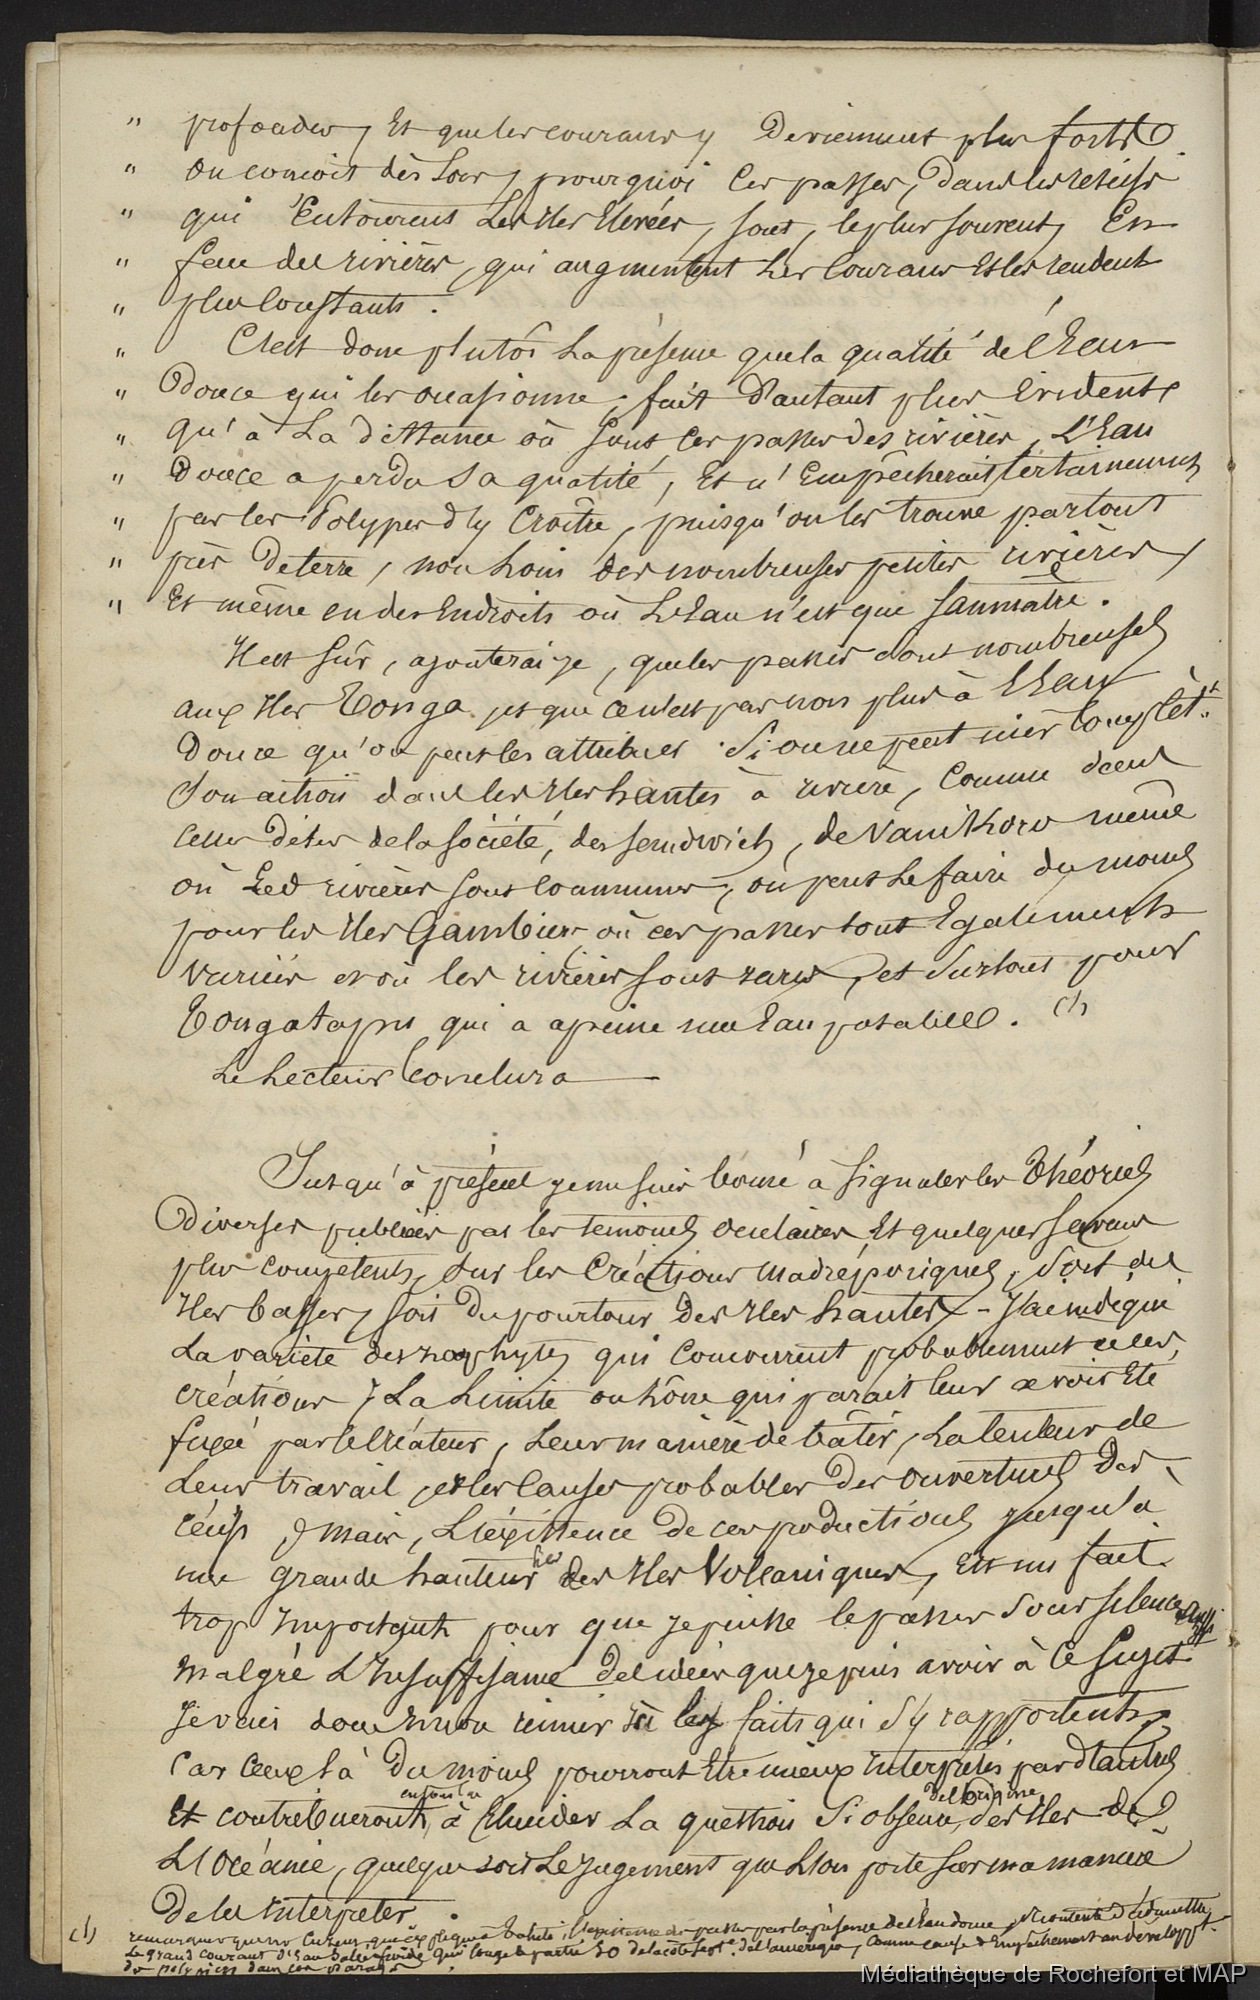 " profondes, Et que les courans y Deviennent plus forts.
" on conçoit dès Lors, pourquoi Ces passes, Dans les récifs
" qui Entourent Les Iles Elevées, sont, le plus souvent, En
" face des rivières, qui augmentent Les Courans Et les rendent
" plus Constants.
" C'est donc plutôt La présence que la qualité de l'Eau
" Douce qui les occasionne; fait d'autant plus Evident,
" qu'à La distance où sont, Ces passes des rivières, L'Eau
" Douce a perdu Sa qualité, Et n'Empêcherait Certainement
" pas les Polypes d'y Croître, puisqu'on les trouve partout
" près De terre, non Loin des nombreuses petites rivières,
" Et même en des Endroits où L'Eau n'est que Saumatre.
Il est Sûr, ajouterai je, que les passes sont nombreuses
aux Iles Tonga, et que ce n'est pas non plus à L'Eau
Douce qu'on peut les attribuer. Si on ne peut nier Complèt.t
Son action dans les Iles hautes à rivière, Comme dans
celles d'îles de la Société, des Sandwich, de Vanikoro même
où Les rivières sont Communes, on peut Le faire du moins
pour les Iles Gambier, où ces passes sont Egalement
variées et où les rivières sont rares, et Surtout pour
Tongatapu qui a à peine une Eau potable. (1)
Le Lecteur Conclura
Jusqu'à présent je me suis borné à signaler les Théories
Diverses publiées par les témoins oculaires Et quelques savans
plus Compétents, Sur les Créations madréporiques, Soit des
Iles basses, soit Du pourtour Des Iles hautes - J'ai indiqué
La variété des zoophytes qui Concourent probablement à ces
créations, La Limite ou zône qui paraît leur avoir Eté
fixée par le Créateur, Leur manière de bâtir, La lenteur de
Leur travail, et les Causes probables Des ouvertures Des
récifs; mais, L'existence De ces productions jusqu'à
une grande hauteur sur des Iles Volcaniques, Est un fait
trop Important pour que je puisse le passer Sous silence, aussi
malgré L'Insuffisance Des idées que je puis avoir à Ce Sujet
Je vais donc réunir ici les faits qui S'y rapportent,
Car Ceux là Du moins pourront Etre mieux Interprétés par d'autres
Et contribueront ensuite à Elucider La question Si obscure de l'origine des Iles de
L'Océanie, quelque soit Le Jugement que L'on porte sur ma manière
De les Interpréter.
(1) remarquez qu'un auteur, qui explique à Tahiti, l'existence des passes par la présence de l'Eau douce,
Le grand courant d'Eau Salée froide qui longe la partie SO de la côte de l'amérique, Comme cause d'Empêchement au développ.t
de polypiers dans ces parages.
Médiathèque de Rochefort et MAP